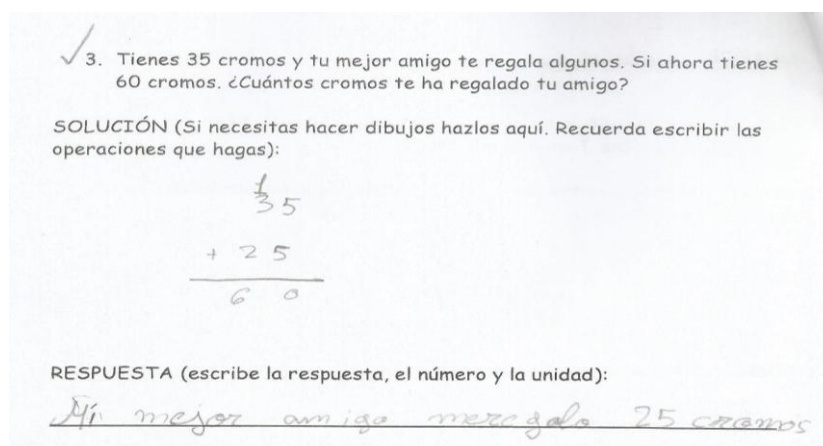 3. Tienes 35 cromos y tu mejor amigo te regala algunos. Si ahora tienes
60 cromos. ¿Cuántos cromos te ha regalado tu amigo?
SOLUCIÓN (Si necesitas hacer dibujos hazlos aquí. Recuerda escribir las
operaciones que hagas):
1
35
+ 25
60
RESPUESTA (escribe la respuesta, el número y la unidad):
Mí mejor amigo meregalo 25 cromos